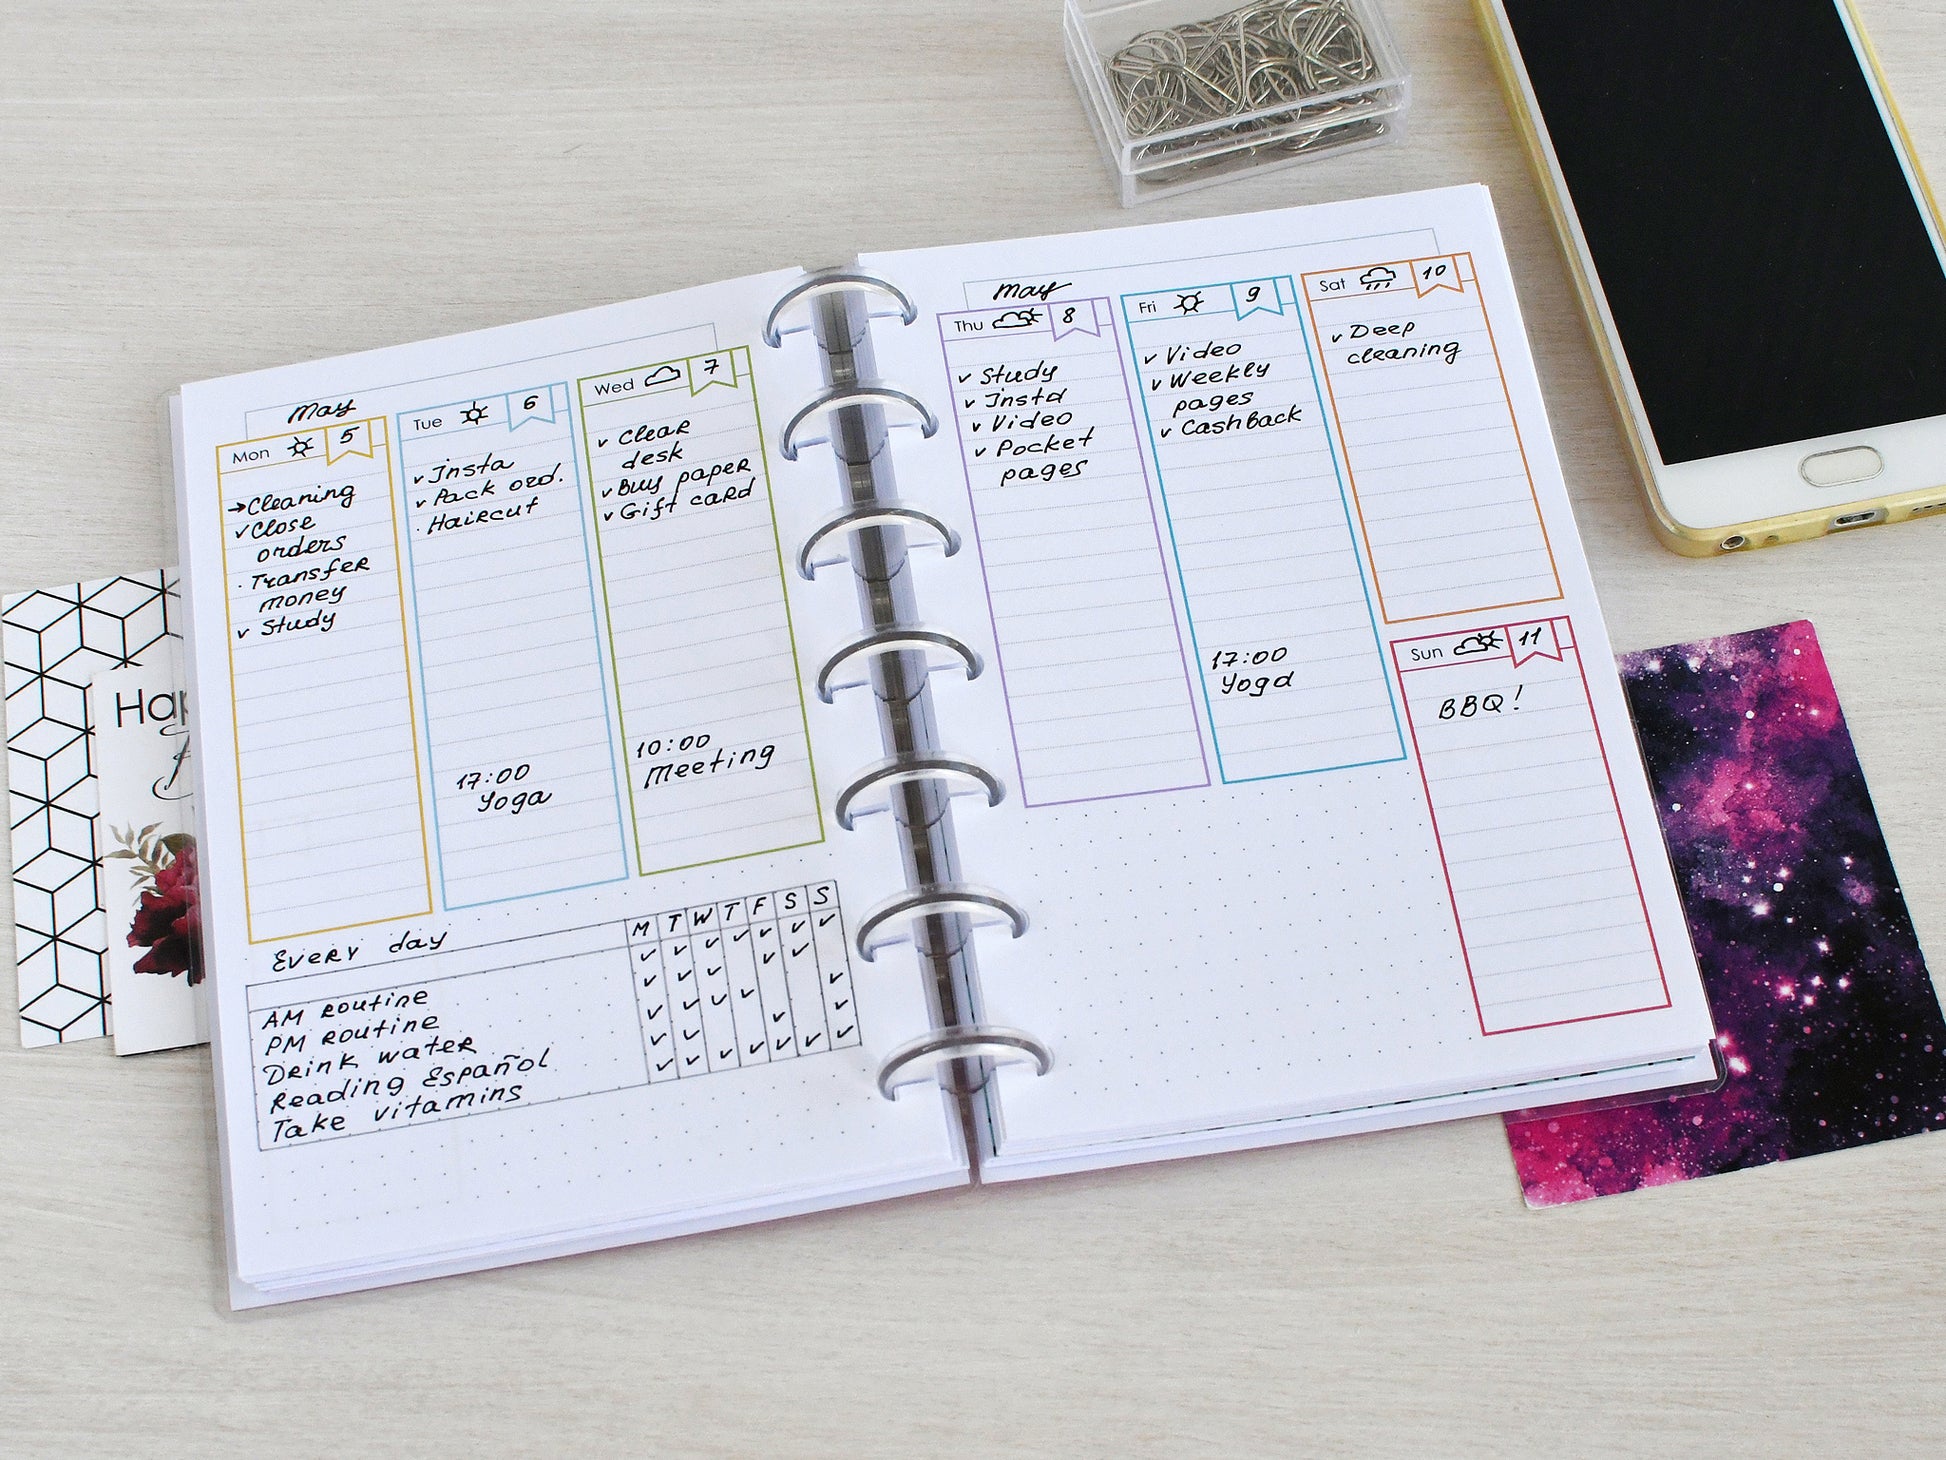 May
Mon 5
→Cleaning
✓Close
orders
· Transfer
money
✓ Study
Tue 6
✓ Insta
✓ Pack ord.
· Haircut
17:00
Yoga
Wed 7
✓ Clear
desk
✓ Buy paper
✓ Gift card
10:00
Meeting
Every day
M T W T F S S
AM routine
PM routine
Drink water
Reading Español
Take vitamins
May
Thu 8
✓ Study
✓ Insta
✓ Video
✓ Pocket
pages
Fri 9
✓ Video
✓ Weekly
pages
✓ Cashback
17:00
Yoga
Sat 10
✓ Deep
cleaning
Sun 11
BBQ!